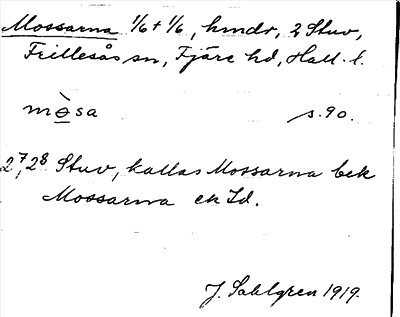 Mossarna 1/6 + 1/6, hmdr, 2 Stuv,
Frillesås sn, Fjäre hd, Hall. l.
mȯ̱sa s. 90.
2⁷, 2⁸ Stuv, kallas Mossarna bek
Mossarna ek Id.
J. Sahlgren 1919.